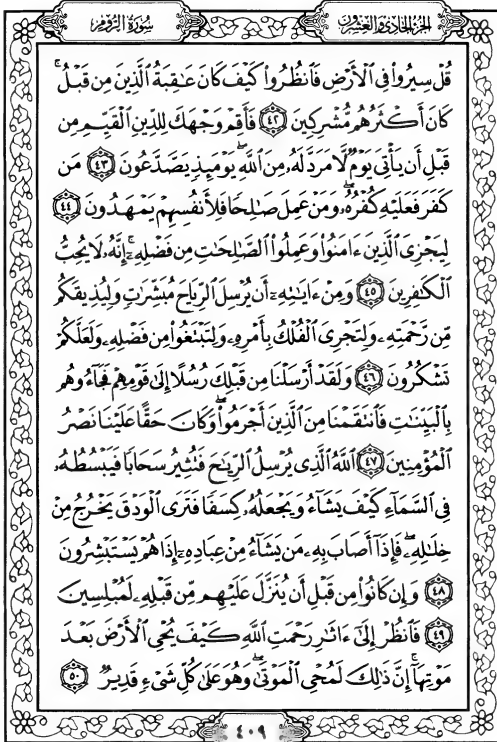 الجزء الحادي والعشرين
سورة الروم
قُلْ سِيرُوا۟ فِى ٱلْأَرْضِ فَٱنظُرُوا۟ كَيْفَ كَانَ عَـٰقِبَةُ ٱلَّذِينَ مِن قَبْلُ ۚ
كَانَ أَكْثَرُهُم مُّشْرِكِينَ ٤٢ فَأَقِمْ وَجْهَكَ لِلدِّينِ ٱلْقَيِّمِ مِن
قَبْلِ أَن يَأْتِىَ يَوْمٌ لَّا مَرَدَّ لَهُۥ مِنَ ٱللَّهِ ۖ يَوْمَئِذٍ يَصَّدَّعُونَ ٤٣ مَن
كَفَرَ فَعَلَيْهِ كُفْرُهُۥ ۖ وَمَنْ عَمِلَ صَـٰلِحًا فَلِأَنفُسِهِمْ يَمْهَدُونَ ٤٤
لِيَجْزِىَ ٱلَّذِينَ ءَامَنُوا۟ وَعَمِلُوا۟ ٱلصَّـٰلِحَـٰتِ مِن فَضْلِهِۦٓ ۚ إِنَّهُۥ لَا يُحِبُّ
ٱلْكَـٰفِرِينَ ٤٥ وَمِنْ ءَايَـٰتِهِۦٓ أَن يُرْسِلَ ٱلرِّيَاحَ مُبَشِّرَٰتٍ وَلِيُذِيقَكُم
مِّن رَّحْمَتِهِۦ وَلِتَجْرِىَ ٱلْفُلْكُ بِأَمْرِهِۦ وَلِتَبْتَغُوا۟ مِن فَضْلِهِۦ وَلَعَلَّكُمْ
تَشْكُرُونَ ٤٦ وَلَقَدْ أَرْسَلْنَا مِن قَبْلِكَ رُسُلًا إِلَىٰ قَوْمِهِمْ فَجَآءُوهُم
بِٱلْبَيِّنَـٰتِ فَٱنتَقَمْنَا مِنَ ٱلَّذِينَ أَجْرَمُوا۟ ۖ وَكَانَ حَقًّا عَلَيْنَا نَصْرُ
ٱلْمُؤْمِنِينَ ٤٧ ٱللَّهُ ٱلَّذِى يُرْسِلُ ٱلرِّيَـٰحَ فَتُثِيرُ سَحَابًا فَيَبْسُطُهُۥ
فِى ٱلسَّمَآءِ كَيْفَ يَشَآءُ وَيَجْعَلُهُۥ كِسَفًا فَتَرَى ٱلْوَدْقَ يَخْرُجُ مِنْ
خِلَـٰلِهِۦ ۖ فَإِذَآ أَصَابَ بِهِۦ مَن يَشَآءُ مِنْ عِبَادِهِۦٓ إِذَا هُمْ يَسْتَبْشِرُونَ
٤٨ وَإِن كَانُوا۟ مِن قَبْلِ أَن يُنَزَّلَ عَلَيْهِم مِّن قَبْلِهِۦ لَمُبْلِسِينَ
٤٩ فَٱنظُرْ إِلَىٰٓ ءَاثَـٰرِ رَحْمَتِ ٱللَّهِ كَيْفَ يُحْىِ ٱلْأَرْضَ بَعْدَ
مَوْتِهَآ ۚ إِنَّ ذَٰلِكَ لَمُحْىِ ٱلْمَوْتَىٰ ۖ وَهُوَ عَلَىٰ كُلِّ شَىْءٍ قَدِيرٌ ٥٠
٤٠٩